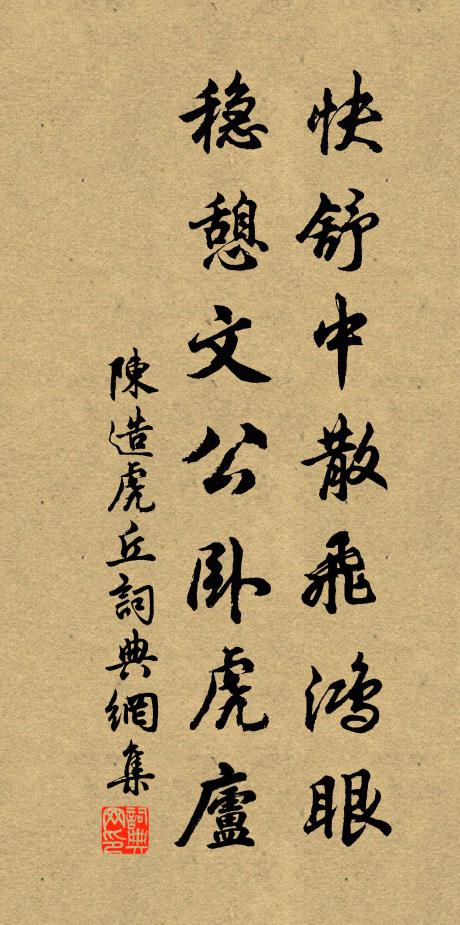 快舒中散飛鴻眼
穩憩文公臥虎廬
陳造虎丘詞典網集
詞典網印